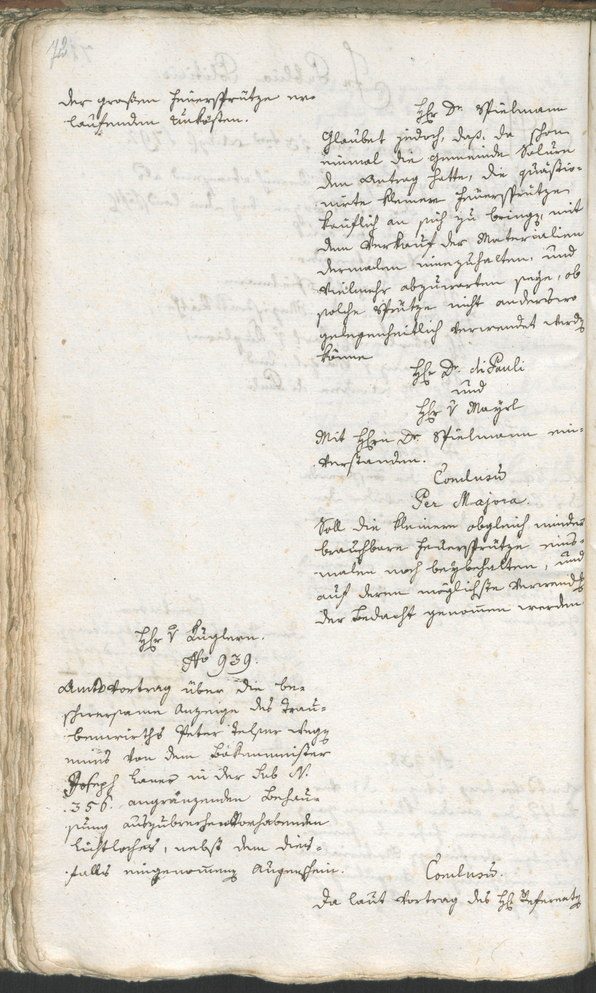 der großen Feuersprütze er-
laufenden Unkösten.
Hr Dr. Spielmann
Glaubet jedoch, daß, da schon
einmal die Gemeinde Salurn
den Antrag hatte, die quästio-
nirte kleinere Feuersprütze
käuflich an sich zu bringen, mit
dem Verkauf der Materialien
dermalen innezuhalten, und
vielmehr abzuwarten seye, ob
solche Sprütze nicht anderswo
gelegenheitlich verwendet werden
könne
Hr Dr. di Pauli
und
Hr v Mayrl
Mit Hrn Dr. Spielmann ein-
verstanden.
Conclusum
Per Majora.
Soll die kleinere obgleich minder
brauchbare Feuersprütze eins-
malen noch beybehalten, und
auf deren möglichste Verwendung
der Bedacht genommen werden
Hr v Zuglern.
No 939.
Amtsvortrag über die be-
schwersame Anzeige des Trau-
benwirths Peter wegen
eines von dem Bökenmeister
Joseph in der Sub N.
356. angränzenden Behau-
sung auszubrechen Vorhabenden
Lichtloches, nebst dem dies-
falls eingenommenen Augenschein.
Conclusum.
Da laut Vortrag des Hr Referenten